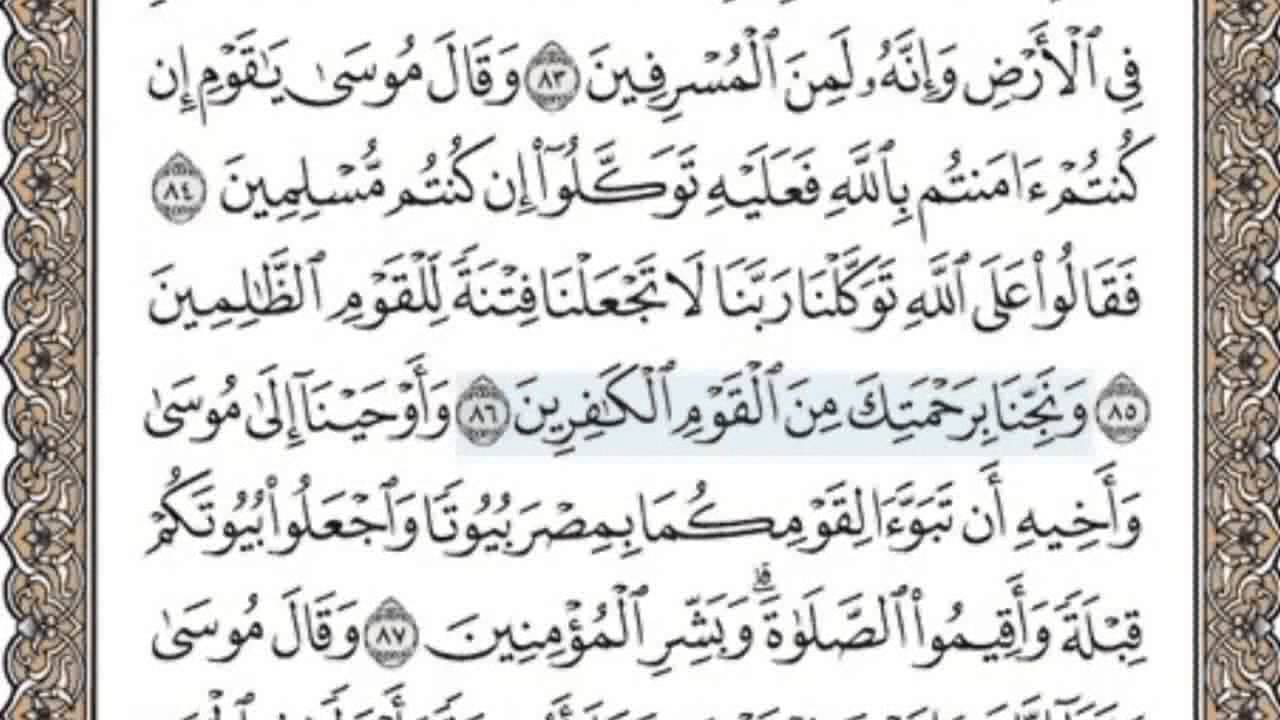 فِى ٱلْأَرْضِ وَإِنَّهُۥ لَمِنَ ٱلْمُسْرِفِينَ ٨٣ وَقَالَ مُوسَىٰ يَـٰقَوْمِ إِن
كُنتُمْ ءَامَنتُم بِٱللَّهِ فَعَلَيْهِ تَوَكَّلُوٓا۟ إِن كُنتُم مُّسْلِمِينَ ٨٤
فَقَالُوا۟ عَلَى ٱللَّهِ تَوَكَّلْنَا رَبَّنَا لَا تَجْعَلْنَا فِتْنَةً لِّلْقَوْمِ ٱلظَّـٰلِمِينَ
٨٥ وَنَجِّنَا بِرَحْمَتِكَ مِنَ ٱلْقَوْمِ ٱلْكَـٰفِرِينَ ٨٦ وَأَوْحَيْنَآ إِلَىٰ مُوسَىٰ
وَأَخِيهِ أَن تَبَوَّءَا لِقَوْمِكُمَا بِمِصْرَ بُيُوتًا وَٱجْعَلُوا۟ بُيُوتَكُمْ
قِبْلَةً وَأَقِيمُوا۟ ٱلصَّلَوٰةَ ۗ وَبَشِّرِ ٱلْمُؤْمِنِينَ ٨٧ وَقَالَ مُوسَىٰ